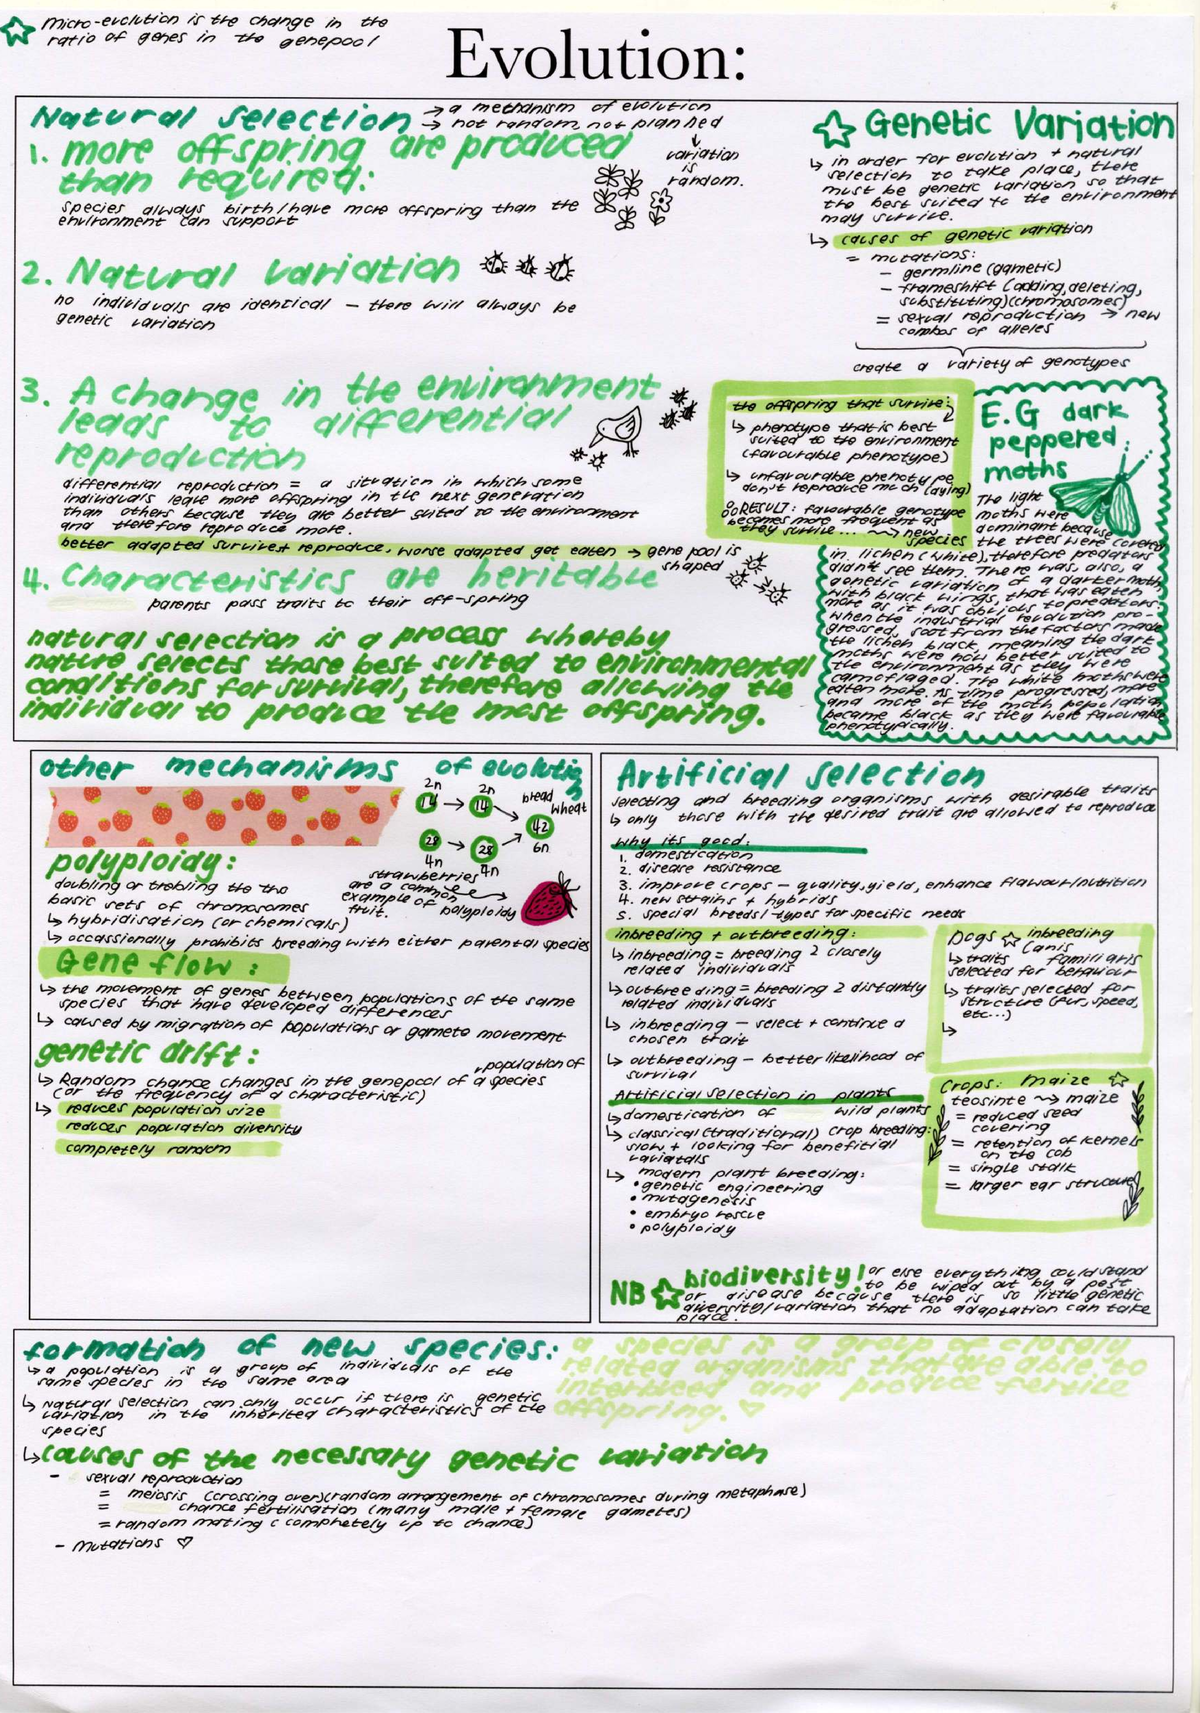 Micro-evolution is the change in the
ratio of genes in the genepool
Evolution:
Natural Selection
→ a mechanism of evolution
→ not random, not planned
variation
is
random.
1. more offspring are produced
than required:
species always birth/have more offspring than the
environment can support
2. Natural variation
no individuals are identical – there will always be
genetic variation
3. A change in the environment
leads to differential
reproduction
differential reproduction = a situation in which some
individuals leave more offspring in the next generation
than others because they are better suited to the environment
and therefore reproduce more.
better adapted survive + reproduce, worse adapted get eaten → gene pool is
shaped
4. Characteristics are heritable
parents pass traits to their off-spring
natural selection is a process whereby
nature selects those best suited to environmental
conditions for survival, therefore allowing the
individual to produce the most offspring.
Genetic Variation
↳ in order for evolution + natural
selection to take place, there
must be genetic variation so that
the best suited to the environment
may survive.
↳ causes of genetic variation
= mutations:
– germline (gametic)
– frameshift (adding, deleting,
substituting)(chromosomes)
= sexual reproduction → new
combos of alleles
create a variety of genotypes
the offspring that survive:
↳ phenotype that is best
suited to the environment
(favourable phenotype)
↳ unfavourable phenotype
don't reproduce much (dying)
RESULT: favourable genotype
becomes more frequent as
they survive... → new
species
E.G dark
peppered
moths
The light
moths were
dominant because
the trees were covered
in lichen (white), therefore predators
didn't see them. There was, also, a
genetic variation of a darker moth
with black wings, that was eaten
more as it was obvious to predators.
When the industrial revolution pro-
gressed, soot from the factors made
the lichen black, meaning the dark
moths were now better suited to
the environment as they were
camoflaged. The white moths were
eaten more. As time progressed, more
and more of the moth population
became black as they were favourable
phenotypically.
other mechanisms of evolution
2n 2n bread wheat
14 → 14 42
28 → 28 6n
4n 4n
polyploidy:
doubling or trebling the the
basic sets of chromosomes
↳ hybridisation (or chemicals)
↳ occassionally prohibits breeding with either parental species
strawberries
are a common
example of polyploidy
fruit.
Gene flow:
↳ the movement of genes between populations of the same
species that have developed differences
↳ caused by migration of populations or gamete movement
genetic drift:
population of
↳ Random chance changes in the genepool of a species
(or the frequency of a characteristic)
↳ reduces population size
reduces population diversity
completely random
Artificial Selection
selecting and breeding organisms with desirable traits
↳ only those with the desired trait are allowed to reproduce
why its good:
1. domestication
2. disease resistance
3. improve crops – quality, yield, enhance flavour/nutrition
4. new strains + hybrids
5. special breeds/types for specific needs
inbreeding + outbreeding:
↳ Inbreeding = breeding 2 closely
related individuals
↳ outbreeding = breeding 2 distantly
related individuals
↳ inbreeding – select + continue a
chosen trait
↳ outbreeding – better likelihood of
survival
Dogs ☆ inbreeding
Canis
familiaris
↳ traits
selected for behaviour
↳ traits selected for
structure (fur, speed,
etc...)
↳
Artificial selection in plants
↳ domestication of wild plants
↳ classical (traditional) crop breeding:
slow + looking for benefitial
variatals
↳ modern plant breeding:
• genetic engineering
• mutagenesis
• embryo rescue
• polyploidy
Crops: maize ☆
teosinte → maize
= reduced seed
covering
= retention of kernels
on the cob
= single stalk
= larger ear structure
NB ☆ biodiversity! or else everything could stand
to be wiped out by a pest
or disease because there is so little genetic
diversity/variation that no adaptation can take
place.
formation of new species:
↳ a population is a group of individuals of the
same species in the same area
↳ Natural selection can only occur if there is genetic
variation in the inherited characteristics of the
species
a species is a group of closely
related organisms that are able to
interbreed and produce fertile
offspring. ♡
↳ causes of the necessary genetic variation
– sexual reproduction
= meiosis (crossing over)(random arrangement of chromosomes during metaphase)
= chance fertilisation (many male + female gametes)
= random mating (completely up to chance)
– Mutations ♡